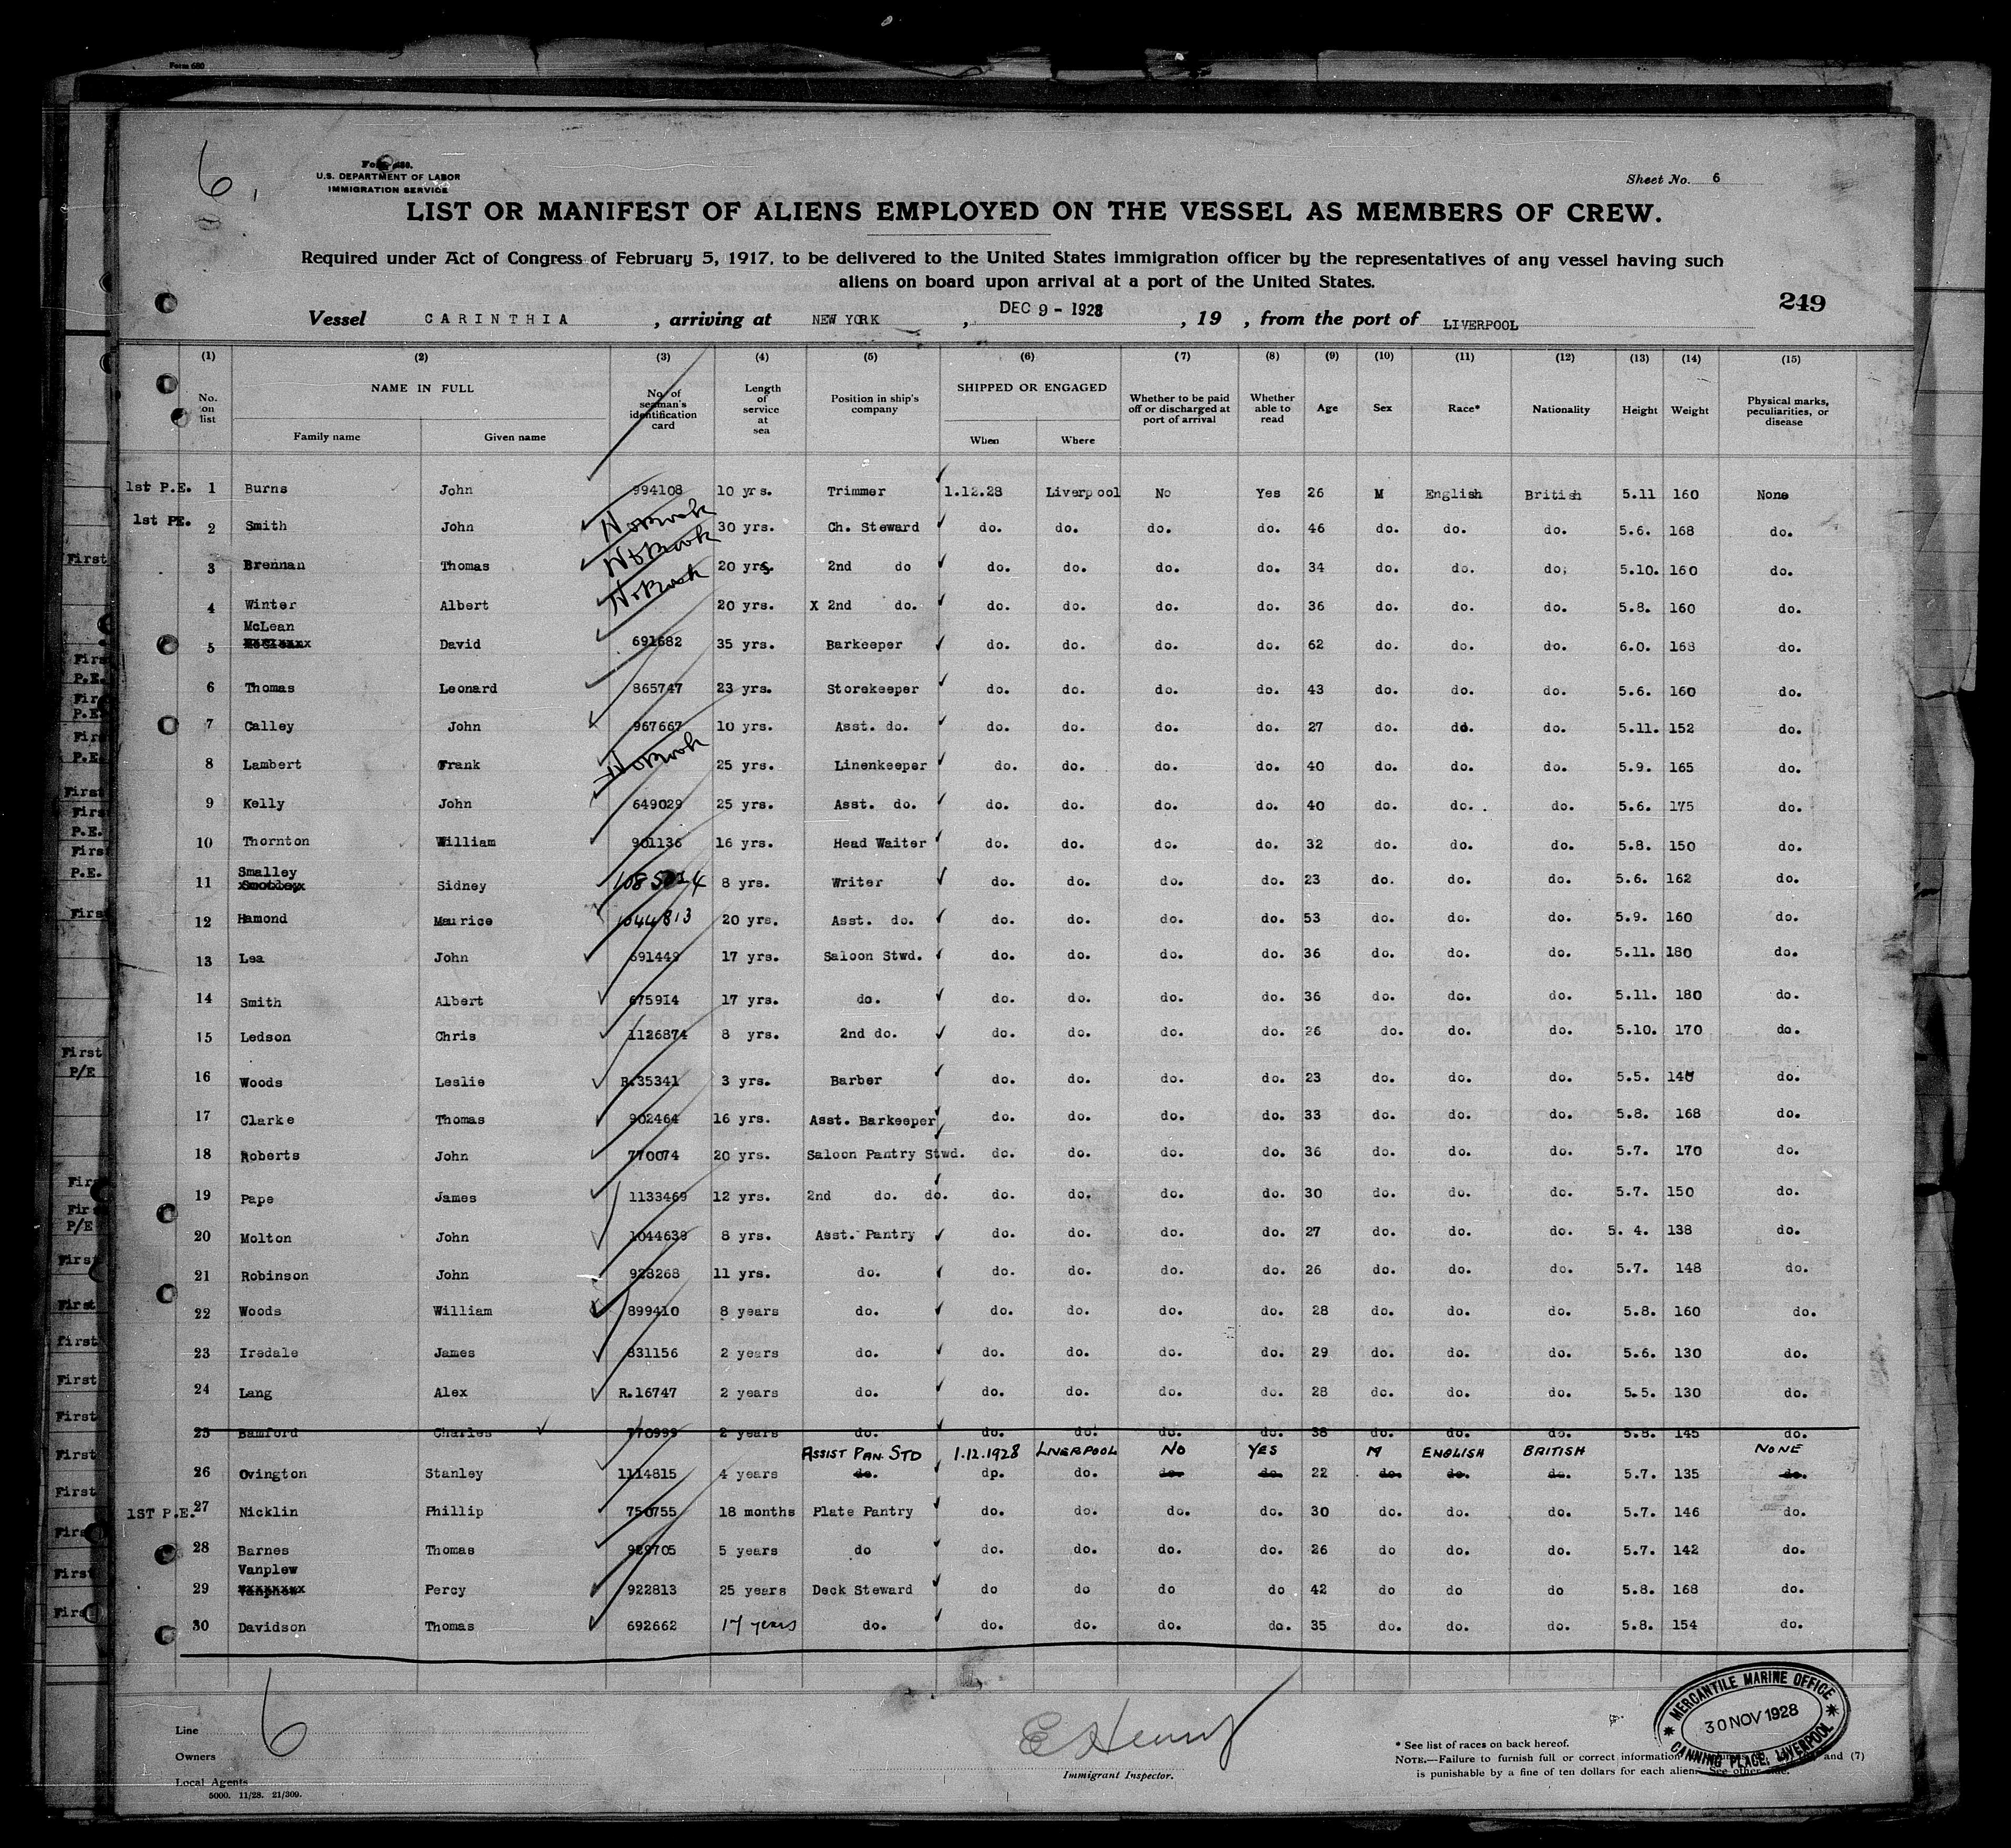 Form 680
6.
Form 680.
U.S. DEPARTMENT OF LABOR
IMMIGRATION SERVICE
Sheet No. 6
LIST OR MANIFEST OF ALIENS EMPLOYED ON THE VESSEL AS MEMBERS OF CREW.
Required under Act of Congress of February 5, 1917, to be delivered to the United States immigration officer by the representatives of any vessel having such
aliens on board upon arrival at a port of the United States.
249
Vessel CARINTHIA , arriving at NEW YORK , DEC 9 - 1928 , 19 , from the port of LIVERPOOL
(1) (2) (3) (4) (5) (6) (7) (8) (9) (10) (11) (12) (13) (14) (15)
No. on list NAME IN FULL Family name Given name No. of seaman's identification card Length of service at sea Position in ship's company SHIPPED OR ENGAGED When Where Whether to be paid off or discharged at port of arrival Whether able to read Age Sex Race* Nationality Height Weight Physical marks, peculiarities, or disease
1st P.E. 1 Burns John 994108 10 yrs. Trimmer 1.12.28 Liverpool No Yes 26 M English British 5.11 160 None
1st PE. 2 Smith John No Book 30 yrs. Ch. Steward do. do. do. do. 46 do. do. do. 5.6. 168 do.
3 Brennan Thomas No Book 20 yrs. 2nd do do. do. do. do. 34 do. do. do; 5.10. 160 do.
4 Winter Albert No Book 20 yrs. X 2nd do. do. do. do. do. 36 do. do. do. 5.8. 160 do.
McLean
5 David 691682 35 yrs. Barkeeper do. do. do. do. 62 do. do. do. 6.0. 168 do.
6 Thomas Leonard 865747 23 yrs. Storekeeper do. do. do. do. 43 do. do. do. 5.6. 160 do.
7 Calley John 967667 10 yrs. Asst. do. do. do. do. do. 27 do. do. do. 5.11. 152 do.
8 Lambert Frank No Book 25 yrs. Linenkeeper do. do. do. do. 40 do. do. do. 5.9. 165 do.
9 Kelly John 649029 25 yrs. Asst. do. do. do. do. do. 40 do. do. do. 5.6. 175 do.
10 Thornton William 901136 16 yrs. Head Waiter do. do. do. do. 32 do. do. do. 5.8. 150 do.
Smalley
11 Sidney 8 yrs. Writer do. do. do. do. 23 do. do. do. 5.6. 162 do.
12 Hamond Maurice 1044813 20 yrs. Asst. do. do. do. do. do. 53 do. do. do. 5.9. 160 do.
13 Lea John 691449 17 yrs. Saloon Stwd. do. do. do. do. 36 do. do. do. 5.11. 180 do.
14 Smith Albert 675914 17 yrs. do. do. do. do. do. 36 do. do. do. 5.11. 180 do.
15 Ledson Chris 1126874 8 yrs. 2nd do. do. do. do. do. 26 do. do. do. 5.10. 170 do.
16 Woods Leslie R.35341 3 yrs. Barber do. do. do. do. 23 do. do. do. 5.5. 140 do.
17 Clarke Thomas 902464 16 yrs. Asst. Barkeeper do. do. do. do. 33 do. do. do. 5.8. 168 do.
18 Roberts John 770074 20 yrs. Saloon Pantry Stwd. do. do. do. do. 36 do. do. do. 5.7. 170 do.
19 Pape James 1133469 12 yrs. 2nd do. do. do. do. do. do. 30 do. do. do. 5.7. 150 do.
20 Molton John 1044639 8 yrs. Asst. Pantry do. do. do. do. 27 do. do. do. 5. 4. 138 do.
21 Robinson John 928268 11 yrs. do. do. do. do. do. 26 do. do. do. 5.7. 148 do.
22 Woods William 899410 8 years do. do. do. do. do. 28 do. do. do. 5.8. 160 do.
23 Iredale James 831156 2 years do. do. do. do. do. 29 do. do. do. 5.6. 130 do.
24 Lang Alex R.16747 2 years do. do. do. do. do. 28 do. do. do. 5.5. 130 do.
25 Bamford Charles 770999 2 years do. do. do. do. do. 38 do. do. do. 5.8. 145 do.
ASSIST PAN. STD 1.12.1928 LIVERPOOL NO YES M ENGLISH BRITISH NONE
26 Ovington Stanley 1114815 4 years do. dp. do. do. do. 22 do. do. do. 5.7. 135 do.
1ST P.E. 27 Nicklin Phillip 750755 18 months Plate Pantry do. do. do. do. 30 do. do. do. 5.7. 146 do.
28 Barnes Thomas 929705 5 years do do. do. do. do. 26 do do. do. 5.7. 142 do.
Vanplew
29 Percy 922813 25 years Deck Steward do do do do 42 do do do 5.8. 168 do.
30 Davidson Thomas 692662 17 years do. do. do. do. do. 35 do. do. do. 5.8. 154 do.
6
Line
Owners
Local Agents
5000. 11/28. 21/309.
E Henry
Immigrant Inspector.
* See list of races on back hereof.
NOTE.—Failure to furnish full or correct information and (7)
is punishable by a fine of ten dollars for each alien. See other side.
MERCANTILE MARINE OFFICE
30 NOV 1928
CANNING PLACE, LIVERPOOL